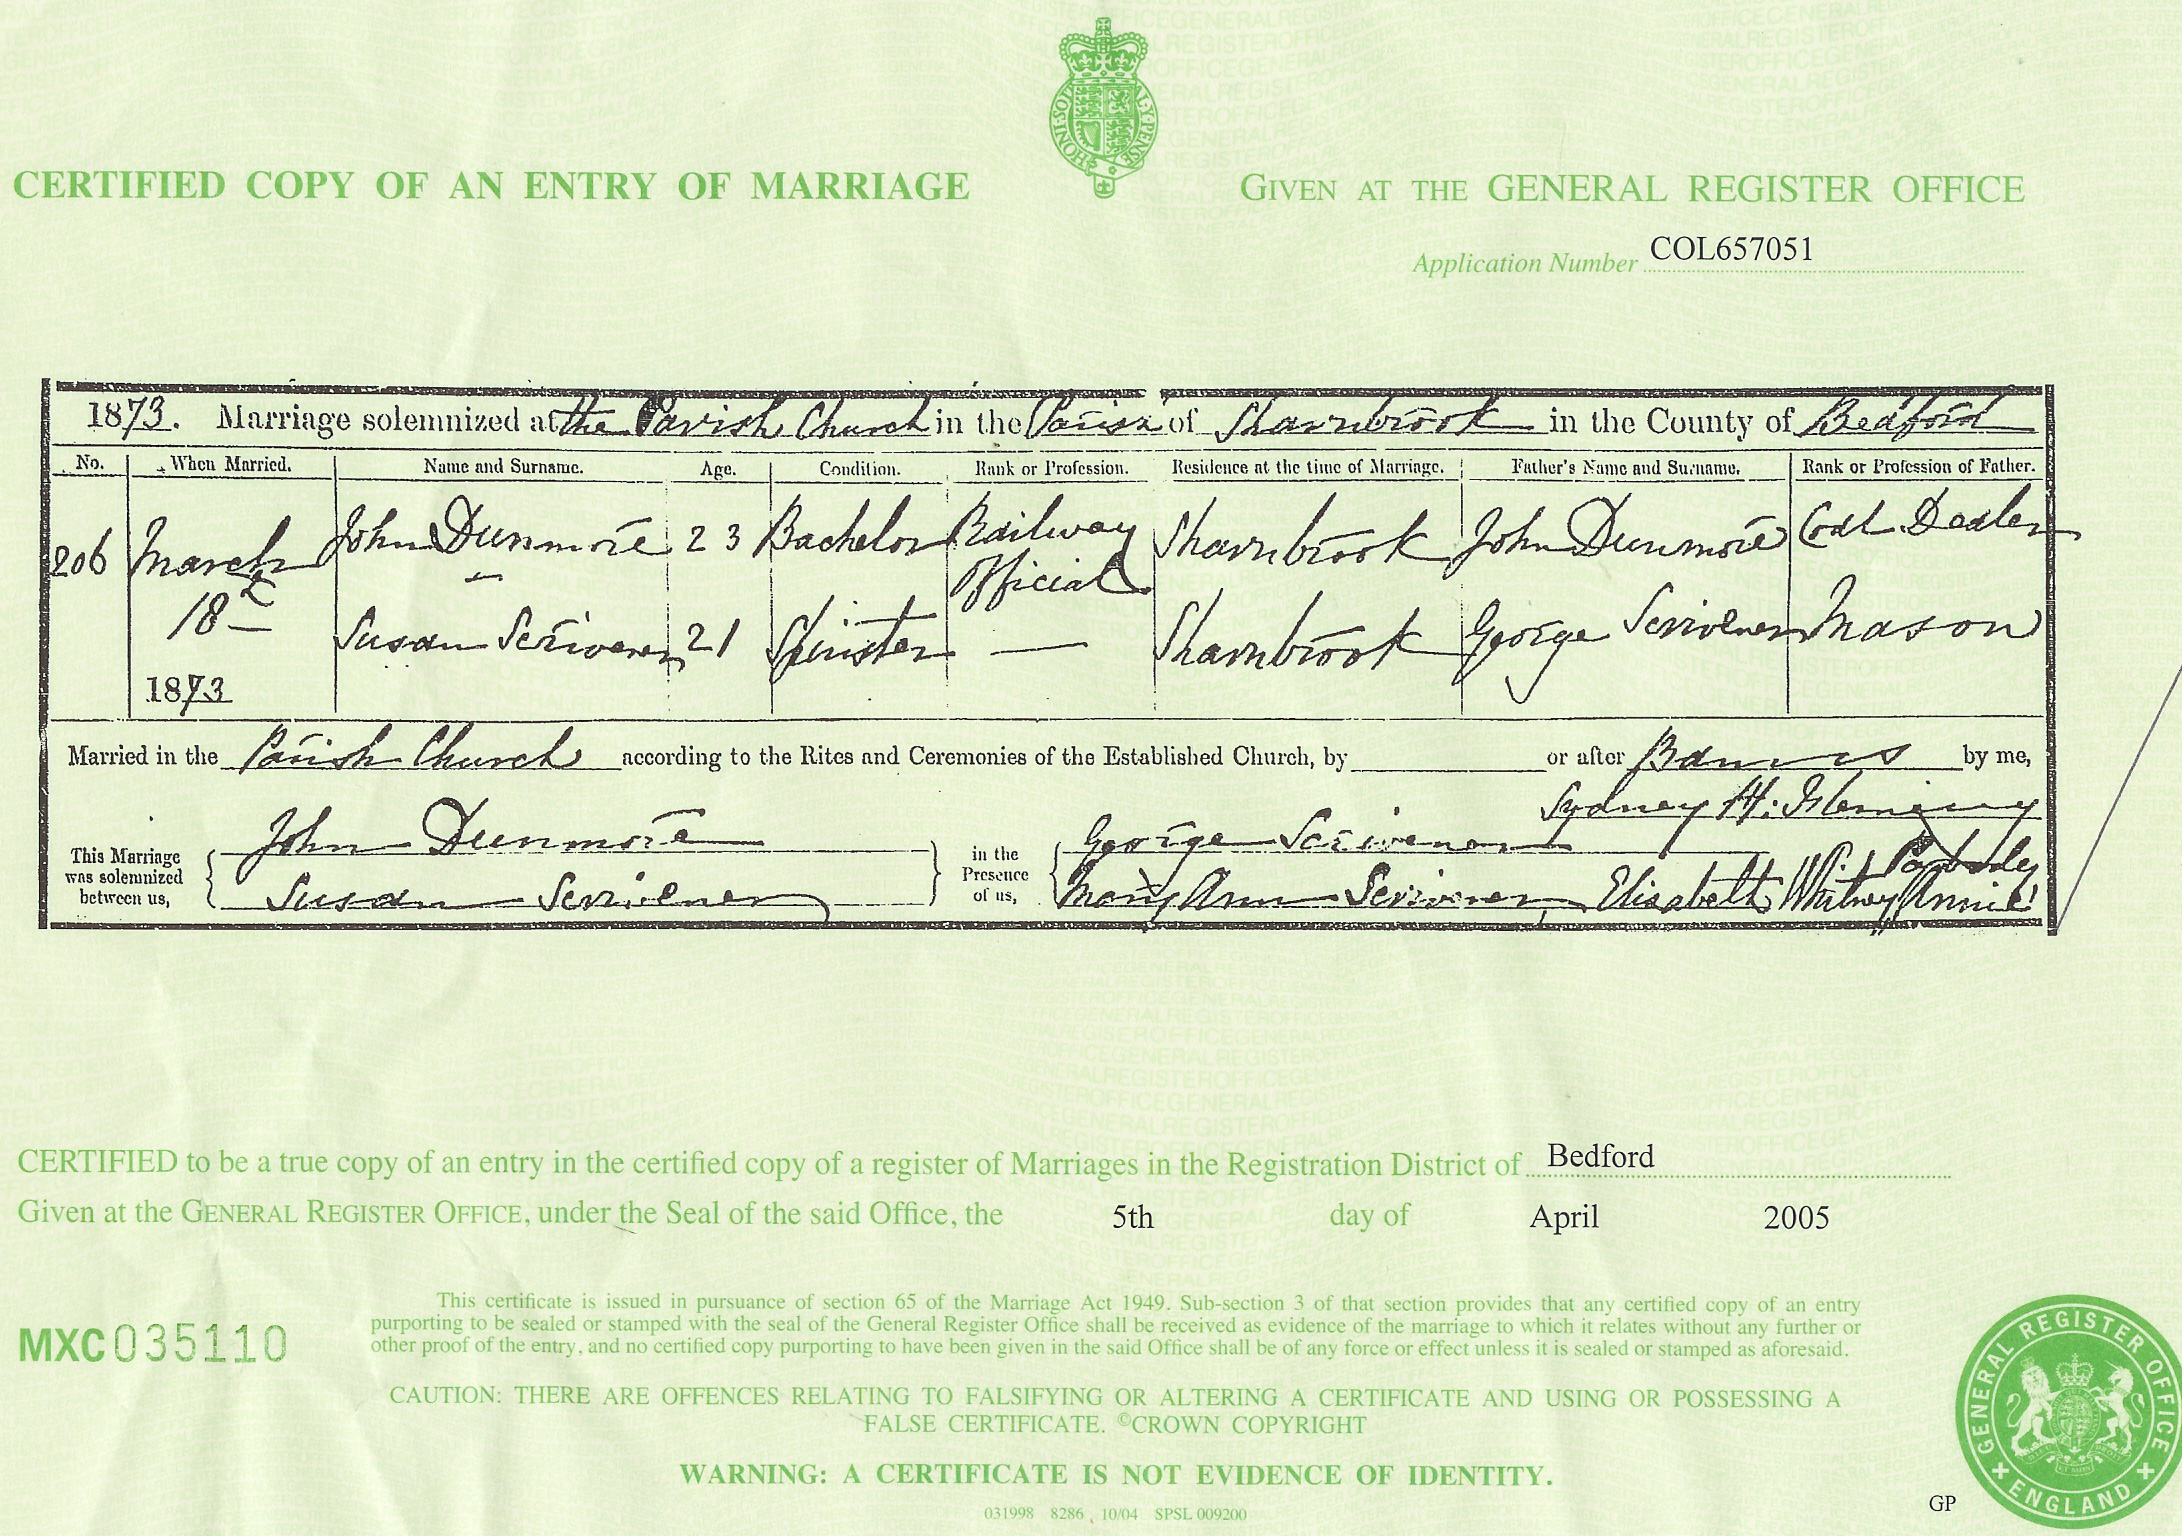 HONI·SOIT·Q AL·Y·PENSE
CERTIFIED COPY OF AN ENTRY OF MARRIAGE
GIVEN AT THE GENERAL REGISTER OFFICE
Application Number COL657051
1873. Marriage solemnized at the Parish Church in the Parish of Sharnbrook in the County of Bedford
No. When Married. Name and Surname. Age. Condition. Rank or Profession. Residence at the time of Marriage. Father's Name and Surname. Rank or Profession of Father.
206 March 18th 1873 John Dunmore 23 Bachelor Railway Official Sharnbrook John Dunmore Coal Dealer
Susan Scrivener 21 Spinster — Sharnbrook George Scrivener Mason
Married in the Parish Church according to the Rites and Ceremonies of the Established Church, by or after Banns by me,
Sydney H.
This Marriage was solemnized between us, John Dunmore in the Presence of us, George Scrivener
Susan Scrivener Mary Ann Scrivener, Elisabeth Whitney Annie
CERTIFIED to be a true copy of an entry in the certified copy of a register of Marriages in the Registration District of Bedford
Given at the GENERAL REGISTER OFFICE, under the Seal of the said Office, the 5th day of April 2005
MXC 035110
This certificate is issued in pursuance of section 65 of the Marriage Act 1949. Sub-section 3 of that section provides that any certified copy of an entry
purporting to be sealed or stamped with the seal of the General Register Office shall be received as evidence of the marriage to which it relates without any further or
other proof of the entry, and no certified copy purporting to have been given in the said Office shall be of any force or effect unless it is sealed or stamped as aforesaid.
CAUTION: THERE ARE OFFENCES RELATING TO FALSIFYING OR ALTERING A CERTIFICATE AND USING OR POSSESSING A
FALSE CERTIFICATE. ©CROWN COPYRIGHT
WARNING: A CERTIFICATE IS NOT EVIDENCE OF IDENTITY.
031998 8286 10/04 SPSL 009200
GP
GENERAL REGISTER OFFICE
ENGLAND